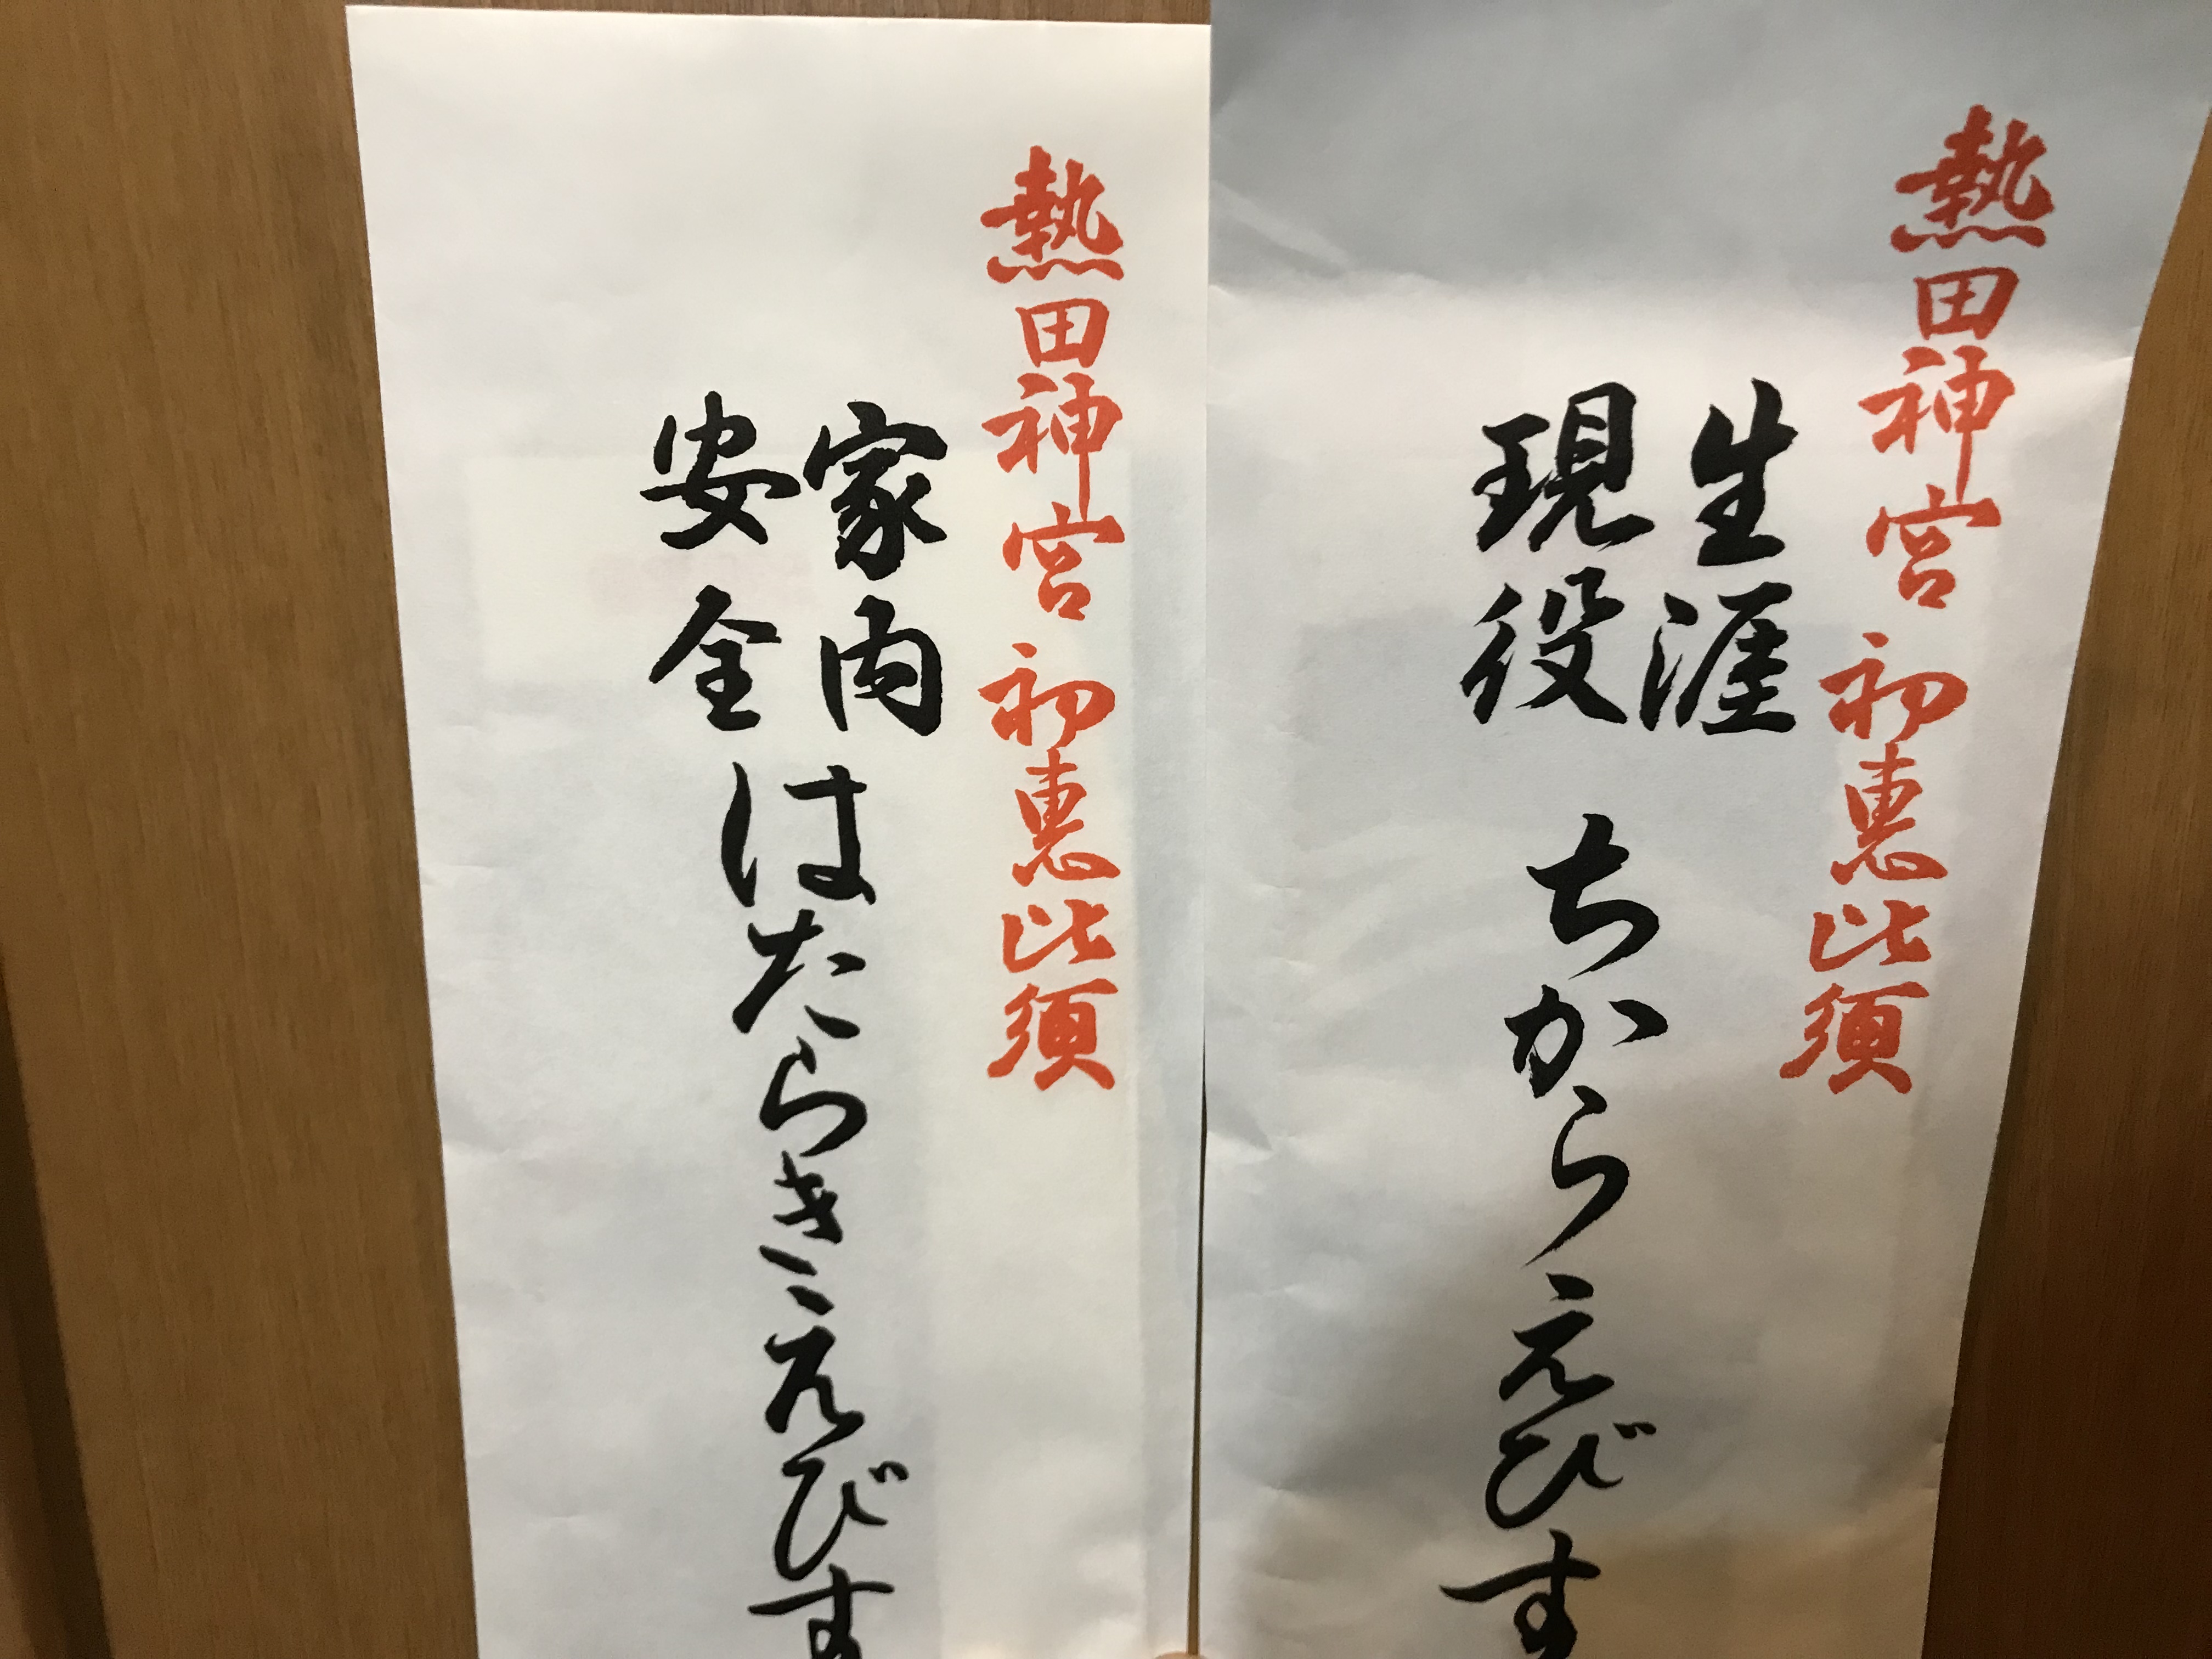 熱田神宮 初恵比須
生涯
現役
ちからえびす
熱田神宮 初恵比須
家内
安全
はたらきえびす